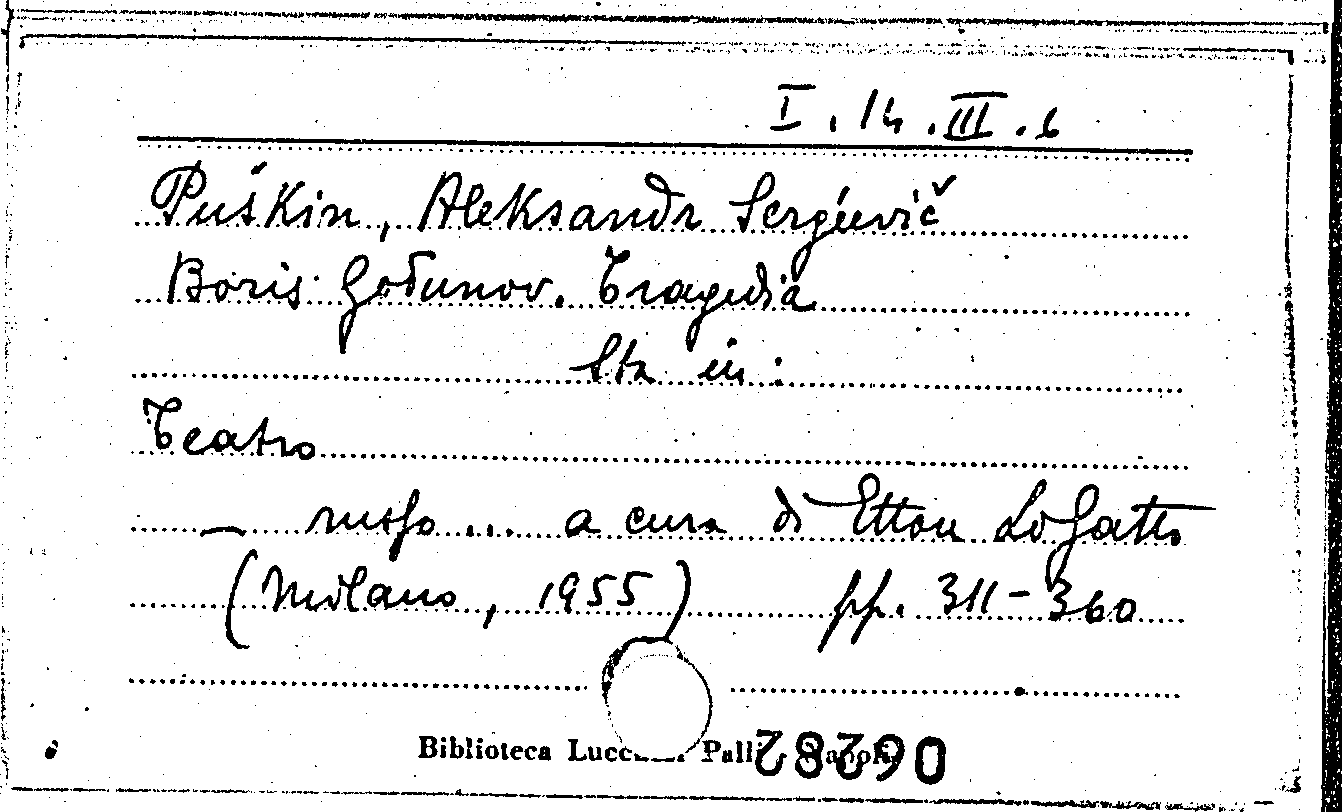 I.14.III.6
Puškin, Aleksandr Sergéevič
Boris Godunov. Tragedia
Sta in:
Teatro
— russo ... a cura di Ettore Lo Gatto
(Milano, 1955) pp. 311-360
Biblioteca Palli Napoli